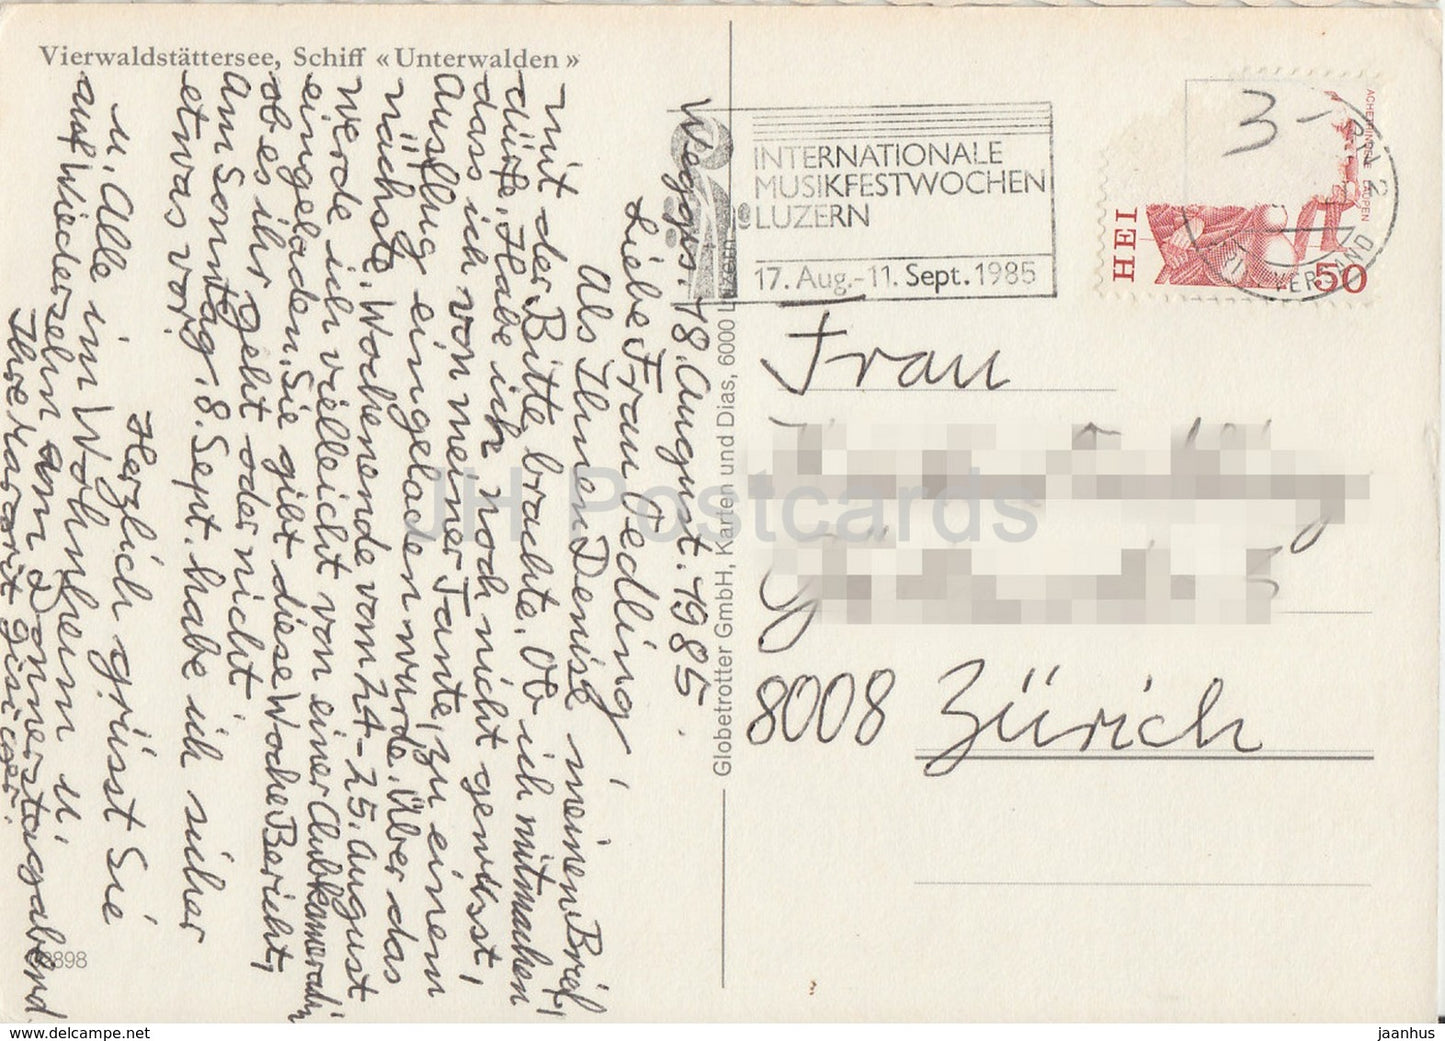 Vierwaldstättersee, Schiff «Unterwalden»
Weggis. 18. August. 1985.
Liebe Frau Oedling!
Als Ihnen Denise meinen Brief,
mit der Bitte brachte. Ob ich mitmachen
dürfe, Habe ich noch nicht gewusst,
dass ich von meiner Tante, zu einem
Ausflug eingeladen wurde. Über das
nächste. Wochenende von 24-25. August
werde ich vielleicht von einer Clubkameradin
eingeladen. Sie gibt diese Woche Bericht,
ob es ihr geht oder nicht.
Am Sonntag. 8. Sept. habe ich sicher
etwas vor!
Herzlich grüsst Sie
u. Alle im Wohnheim u.
auf Wiedersehn am Donnerstagabend
Ihre Margrit
02898
Globetrotter GmbH, Karten und Dias, 6000 Luzern
INTERNATIONALE
MUSIKFESTWOCHEN
LUZERN
17. Aug.-11. Sept. 1985
3-
HEL
50
VERSAND
Frau
8008 Zürich
JH Postcards
www.delcampe.net
jaanhus